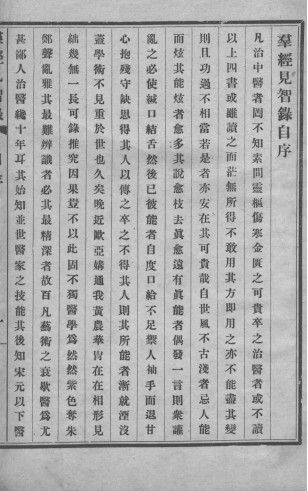 羣經見智錄自序
凡治中醫者罔不知素問靈樞傷寒金匱之可貴卒之治醫者或不讀
以上四書或雖讀之而茫無所得不敢用其方即用之亦不能盡其變
則且功過不相當若是者亦安在其可貴哉自世風不古淺者忌人能
而炫其能炫者愈多其說愈枝去眞愈遠有眞能者偶發一言則衆讙
亂之必使緘口結舌然後已彼能者自度口給不足禦人袖手而退甘
心抱殘守缺思得其人以傳之卒之不得其人則其所能者漸就湮沒
蓋學術不見重於世也久矣晚近歐亞媾通我黃農華胄在在相形見
絀幾無一長可錄推究因果豈不以此固不獨醫學爲然然紫色奪朱
鄭聲亂雅其最難辨識者必其最精深者故百凡藝術之衰歇醫爲尤
甚鄙人治醫纔十年耳其始知並世醫家之技能其後知宋元以下醫
羣經見智錄 自序 一